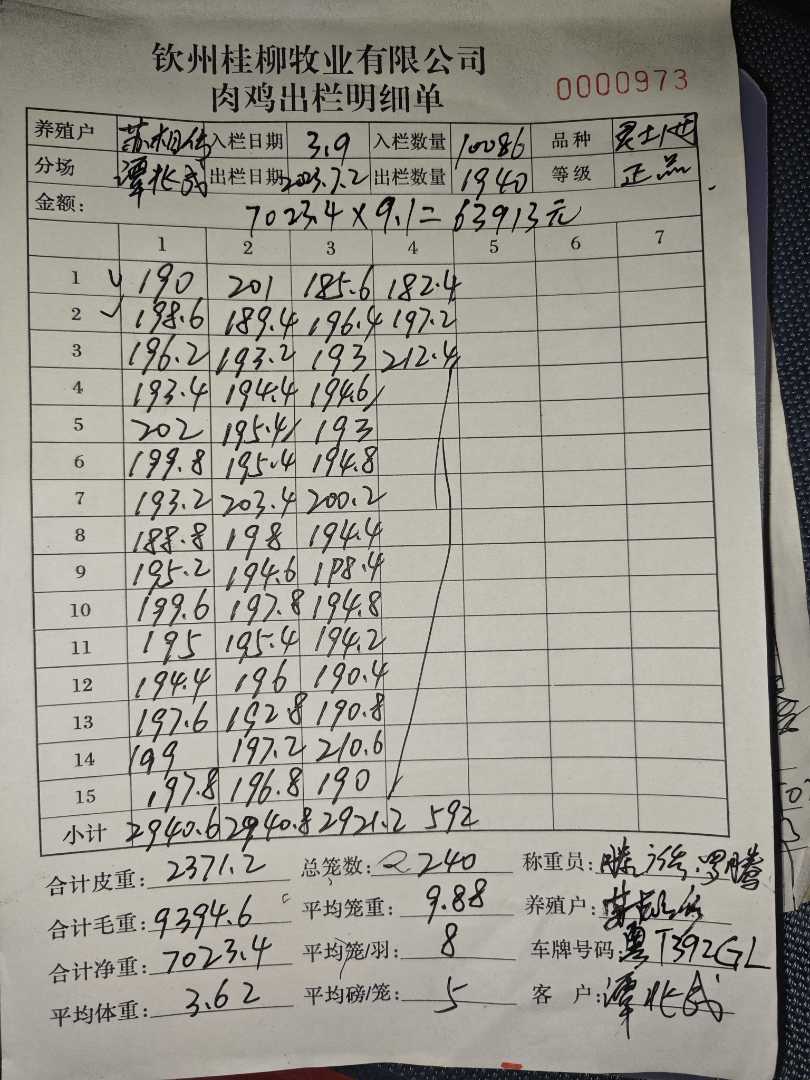 钦州桂柳牧业有限公司
肉鸡出栏明细单
0000973
养殖户 苏相伟 入栏日期 3.9 入栏数量 10086 品种
分场 谭北成 出栏日期 2023.7.2 出栏数量 1940 等级 正品
金额: 7023.4×9.1=63913元
1 2 3 4 5 6 7
1 190 201 185.6 182.4
2 198.6 189.4 196.4 197.2
3 196.2 193.2 193 212.4
4 193.4 194.4 194.6
5 202 195.4 193
6 199.8 195.4 194.8
7 193.2 203.4 200.2
8 188.8 198 194.4
9 195.2 194.6 198.4
10 199.6 197.8 194.8
11 195 195.4 194.2
12 194.4 196 190.4
13 197.6 192.8 190.8
14 199 197.2 210.6
15 197.8 196.8 190
小计 2940.6 2940.8 2921.2 592
合计皮重: 2371.2 总笼数: 240 称重员:
合计毛重: 9394.6 平均笼重: 9.88 养殖户:
合计净重: 7023.4 平均笼/羽: 8 车牌号码: 粤T392GL
平均体重: 3.62 平均磅/笼: 5 客 户: 谭北成